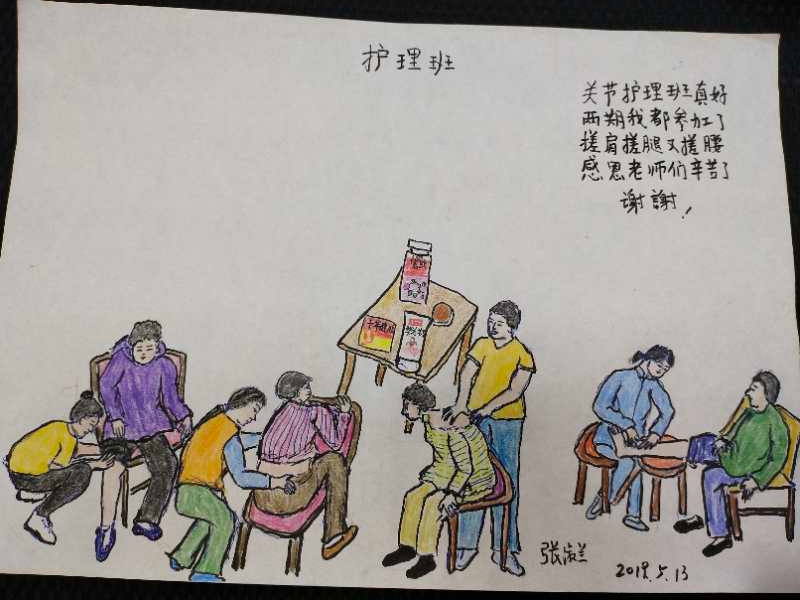 护理班
关节护理班真好
两期我都参加了
搓肩搓腿又搓腰
感恩老师们辛苦了
谢謝!
张淑兰
2019.5.13